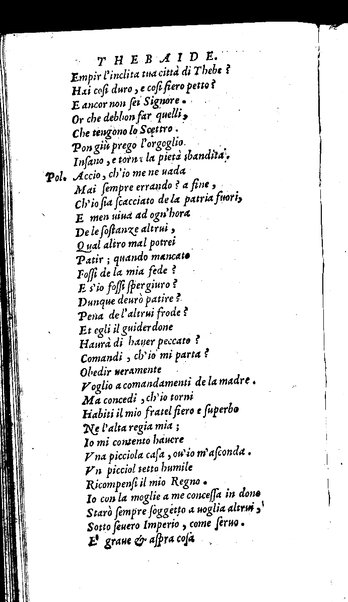 THEBAIDE.
Empir l'inclita tua città di Thebe?
Hai cosi duro, e cosi fiero petto?
E ancor non sei Signore.
Or che debbon far quelli,
Che tengono lo Scettro.
Pon giù prego l'orgoglio
Insano, e torni la pietà sbandita.
Pol. Accio, ch'io me ne uada
Mai sempre errando? a fine,
Ch'io sia scacciato de la patria fuori,
E men uiua ad ogn'hora
De le sostanze altrui,
Qual altro mal potrei
Patir; quando mancato
Fossi de la mia fede?
E s'io fossi spergiuro?
Dunque deurò patire?
Pena de l'altrui frode?
Et egli il guiderdone
Haurà di hauer peccato?
Comandi, ch'io mi parta?
Obedir ueramente
Voglio a comandamenti de la madre.
Ma concedi, ch'io torni
Habiti il mio fratel fiero e superbo
Ne l'alta regia mia;
Io mi contento hauere
Vna picciola casa, ou'io m'asconda.
Vn picciol tetto humile
Ricompensi il mio Regno.
Io con la moglie a me concessa in dono
Starò sempre soggetto a uoglia altrui,
Sotto seuero Imperio, come seruo.
E' graue & aspra cosa